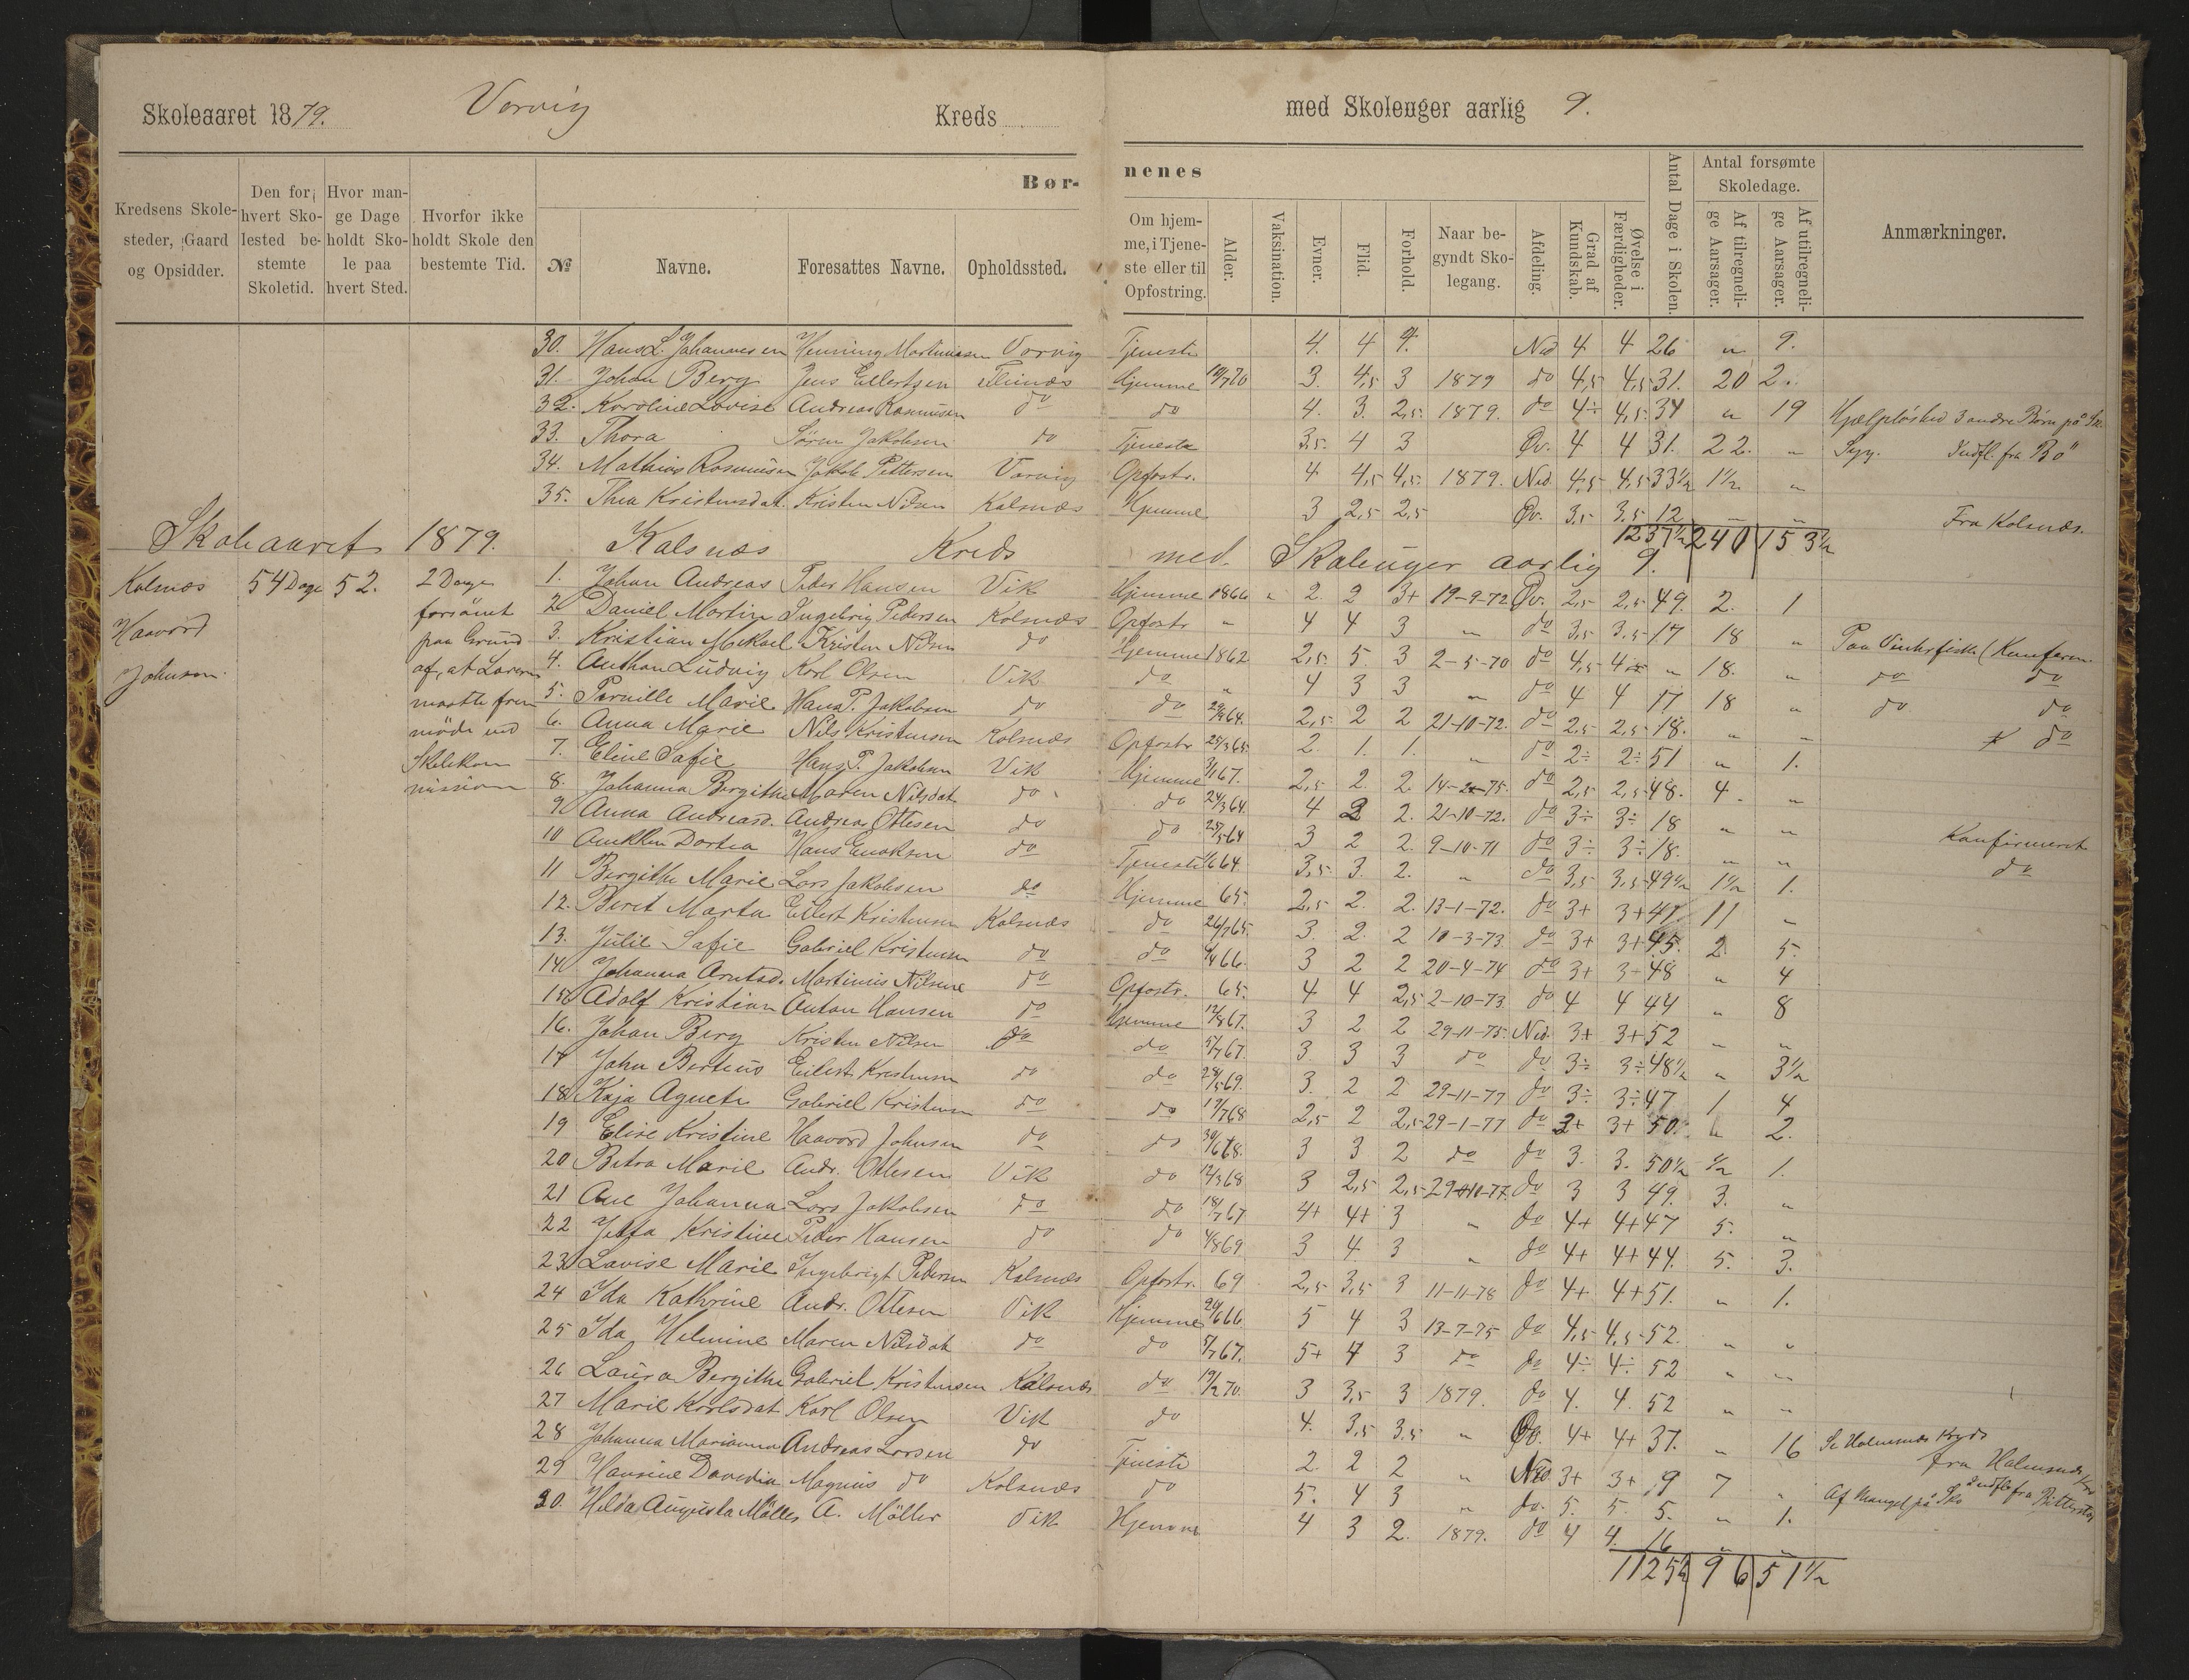 Skoleaaret 1879. Vorvig Kreds med Skolenger aarlig 9.
Børnenes
Kredsens Skolesteder, Gaard og Opsidder.
Den for hvert Skolested bestemte Skoletid.
Hvor mange Dage holdt Skole paa hvert Sted.
Hvorfor ikke holdt Skole den bestemte Tid.
№ Navne. Foresattes Navne. Opholdssted.
Om hjemme, i Tjeneste eller til Opfostring.
Alder. Vaksination. Evner. Flid. Forhold.
Naar begyndt Skolegang.
Afdeling. Grad af Kundskab. Øvelse i Færdigheder. Antal Dage i Skolen.
Antal forsømte Skoledage.
Af tilregnelige Aarsager. Af utilregnelige Aarsager.
Anmærkninger.
30. Hans L. Johannesen Henning Martinusen Vorvig Tjeneste 4. 4 4. Ned 4 4 26 " 9.
31. Johan Berg Jens Eilertsen Flinæs Hjemme 10/7 70 3. 4,5 3 1879 do 4,5 4,5 31. 20 2.
32. Karoline Lovise Andreas Rasmussen do do 4. 3. 2,5. 1879. do 4÷ 4,5. 34 " 19 Hjælpløshed 3 andre Børn på Sk.
33. Thora Søren Jakobsen do Tjeneste 3,5. 4 3 Øv. 4 4 31. 22. " Syg. Indfl. fra Bö
34. Mathias Rasmussen Jakob Pettersen Vorvig Opfostr. 4 4,5 4,5. 1879. Ned 4,5 4,5 33½ 1½ "
35. Thea Kristensdat. Kristen Nilsen Kalsnæs Hjemme 3 2,5 2,5 Øv. 3,5 3,5 12 " " Fra Kolnæs.
1237½ 240 153½
Skoleaaret 1879. Kalsnæs Kreds med Skolenger aarlig 9.
Kalsnæs 54 Dage 52. 2 Dage
Haavord forsömt
Johnsen. paa Grund
af, at Læreren
maatte frem
møde ved
Skolekom
mission
1. Johan Andreas Peder Hansen Vik Hjemme 1866 " 2. 2 3+ 19-9-72 Øv. 2,5 2,5 49. 2. 1
2 Daniel Martin Ingebrig Pedersen Kolsnæs Opfostr " 4 4 3 " do 3,5 3,5 17 18 " Paa Vinterfiske (Konferm
3. Kristian Mikael Kristen Nilsen do Hjemme 1862 2,5. 5. 3 2-5-70 do 4,5 " 18. " do do
4. Anthon Ludvig Karl Olsen Vik do " 4 3 3 " do 4 4 17 18 " do do
5. Pernille Marie Hans P. Jakobsen do do 64. 2,5 2 2 21-10-72. do 2,5 2,5 18. " " do
6. Anna Marie Nils Kristensen Kolsnæs Opfostr 25/3 65. 2. 1. 1. " do 2÷ 2÷ 51 " 1.
7. Eline Safie Hans P. Jakobsen Vik Hjemme 3/1 67. 2,5 2. 2. 14-2-75. do 2,5 2,5 48. 4. "
8. Johanna Bergithe Maren Nilsdat do do 24/3 64. 4 2 2. 21-10-72. do 3÷ 3÷ 18 " "
9 Anna Andreasd. Andreas Ottesen do do 25/5 64 3 2 2. 9-10-71 do 3÷ 3÷ 18. " " Konfirmeret
10 Annkken Dortea Hans Enoksen do Tjeneste 64. 3,5 3. 2. " do 3,5 3,5 49½ 1½ 1. do
11 Bergithe Marie Lars Jakobsen do Hjemme 65. 2,5 2. 2. 13-1-72. do 3+ 3+ 47. 11 "
12. Beret Marta Eilert Kristensen Kalsnæs do 26/7 65. 3. 2. 2 10-3-73 do 3+ 3+ 45. 2. 5.
13. Julie Safie Gabriel Kristensen do do 66. 3 2 2 20-4-74 do 3+ 3+ 48 " 4
14 Johanna Arntsd. Martinus Nilsen do Opfostr. 65. 4 4 2,5 2-10-73. do 4 4 44 " 8
15 Adolf Kristian Anton Hansen do Hjemme 12/8 67. 3 2 2 29-11-75. Ned. 3+ 3+ 52 " "
16. Johan Berg Kristen Nilsen do do 5/7 67. 3. 3 3 do do 3÷ 3÷ 48½ " 3½
17 John Berteus Eilert Kristensen do do 28/5 69. 3. 2 2 29-11-77 do 3÷ 3÷ 47 1 4
18 Kaja Agnete Gabriel Kristensen do do 17/7 68 2,5 2 2,5 29-1-77 do 3+ 3+ 50. " 2.
19 Elise Kristine Haavord Johnsen do do 30/6 68. 3 3 2 do do 3. 3. 50½ ½ 1.
20 Petra Marie Andr. Ottesen Vik do 12/3 68 3 2,5 2,5 29-10-77. do 3 3 49. 3. "
21 Ane Johanna Lars Jakobsen do do 18/7 67 4+ 4+ 3 " do 4+ 4+ 47 5. "
22 Jetta Kristine Peder Hansen do do 4/8 69 3 4 3 " do 4+ 4+ 44. 5. 3.
23 Lovise Marie Ingebrigt Pedersen Kalsnæs Opfostr. 69 2,5 3,5 3 11-11-78 do 4+ 4+ 51. " 1.
24 Ida Kathrine Andr. Ottesen Vik Hjemme 20/6 66 5 4 3 13-7-75 do 4,5 4,5 52. " "
25 Ida Helmine Maren Nilsdat do do 5/7 67. 5+ 4 3 do do 4÷ 4÷ 52 " "
26 Laura Bergithe Gabriel Kristensen Kalsnæs do 19/2 70. 3 3,5 3 1879. do 4. 4. 52 " "
27 Marie Karlsdat Karl Olsen Vik do 4. 3,5 3,5 " Øv. 4+ 4+ 37. " 16 Se Holmenæs Kreds
28 Johanna Marianna Andreas Larsen do Tjeneste 2. 2 2 " Ned. 3+ 3+ 9 7 " fra Holmenæs Kr
29 Hansine Davedia Magnus do Kolsnæs do 5. 4 3 " do. 5. 5. 5. " 1. Af Mangel på Sko Indfl fra
30. Hilda Augusta Möller A. Möller Vik Hjemme 4 3 2. 1879. do 4 4. 16 " "
1125½ 96 51½